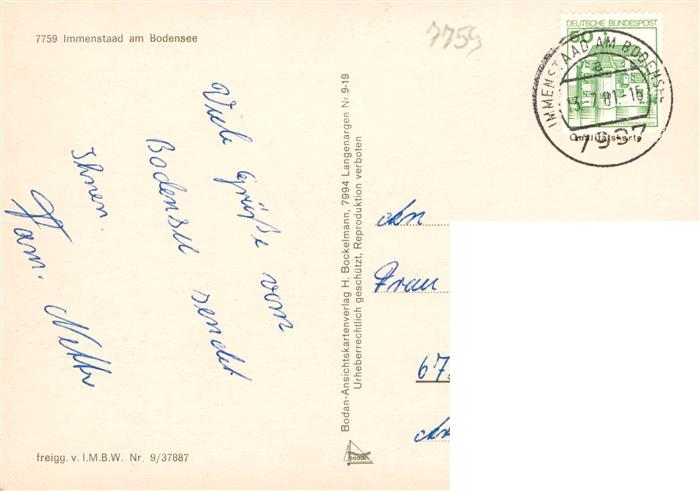 7759 Immenstaad am Bodensee
7759
DEUTSCHE BUNDESPOST
50
IMMENSTAAD AM BODENSEE
a
13.-7.81.-15
7997
Qualitätskarte
Viele Grüße vom
Bodensee sendet
Ihnen.
Fam.
Bodan-Ansichtskartenverlag H. Bockelmann, 7994 Langenargen Nr 9-19
Urheberrechtlich geschützt, Reproduktion verboten
An
Frau
67
freigg. v. I.M.B.W. Nr. 9/37887
bodan